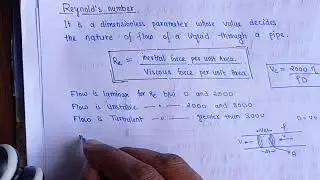 Reynold's number
It is a dimensionless parameter whose value decides
the nature of flow of a liquid through a pipe.
Re = inertial force per unit Area / Viscous force per unit Area
Vc = 2000 η / ρD
Flow is laminar for Re btw 0 and 2000
Flow is Unstable —〃— 2000 and 3000
Flow is Turbulent —〃— greater than 3000